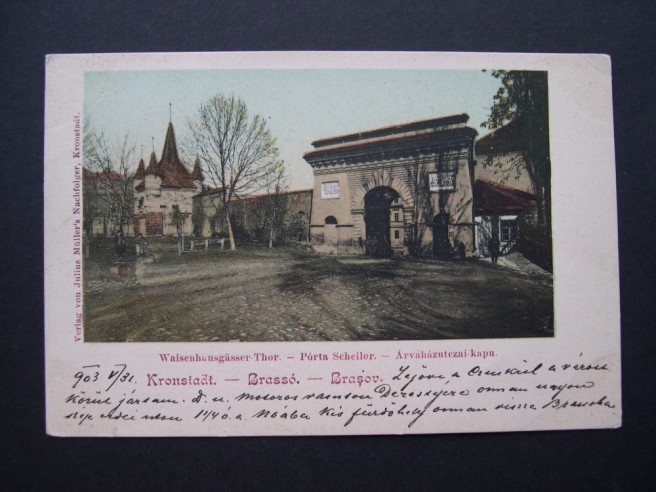 Verlag von Julius Müller's Nachfolger, Kronstadt.
Waisenhausgässer-Thor. — Pórta Scheilor. — Árvaházutczai-kapu.
903 V/31. Kronstadt. — Brassó. — Braşov. a város
körül jártam. D. u. motoros vasuton onnan nagyon
szép 1140. a kis fürdőhely onnan vissza Brassóba